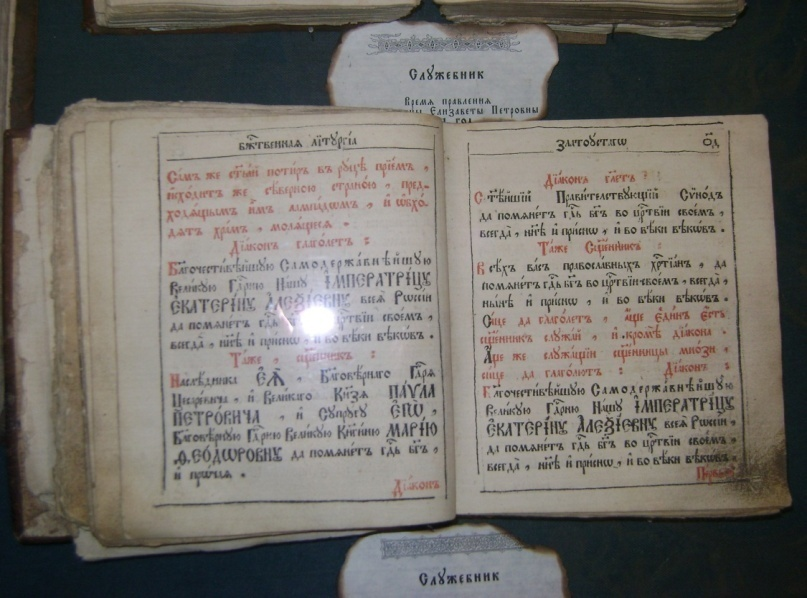 Служебник
Время правления
Елизаветы Петровны
бж҃твенная лїтургі́а
Самъ же ст҃ы́й поти́ръ въ ру́цѣ прїе́мъ,
и҆схо́дитъ же сѣ́верною страно́ю, пред-
ходя́щымъ и҆̀мъ лампа́домъ, и҆ ѡ҆бхо́-
дятъ хра́мъ, моля́щеся.
Дїа́конъ глаго́летъ:
Бл҃гочести́вѣйшую Самодержа́внѣйшую
Вели́кую Гд҃рню На́шу І҆МПЕРАТРІ́ЦУ
Е҆КАТЕРІ́НУ А҆ЛЕѮІ́ЕВНУ всея̀ Рѡссі́и
да помяне́тъ гд҇ь бг҃ъ во цр҇твїи свое́мъ,
всегда̀, нн҃ѣ и҆ при́снѡ, и҆ во вѣ́ки вѣкѡ́въ.
Та́же, сщ҃е́нникъ:
Наслѣ́дника Е҆Я̀, Бл҃говѣ́рнаго Гд҃ря
Цеса́ревича, и҆ Вели́каго Кн҃зя ПА́ѴЛА
ПЕТРО́ВИЧА, и҆ Супру́гу Е҆ГѠ̀,
Бл҃говѣ́рную Гд҃рню Вели́кую Кн҃ги́ню МАРІ́Ю
Ѳ҆ЕОДѠРОВНУ да помяне́тъ гд҇ь бг҃ъ,
и҆ про́чая.
Дїа́конъ
Златоу́стагѡ о҃д
Дїа́конъ гл҃етъ:
С҃тѣ́йшїй Прави́тельствующїй Сѷно́дъ
да помяне́тъ гд҇ь бг҃ъ во цр҇твїи свое́мъ,
всегда̀, нн҃ѣ и҆ при́снѡ, и҆ во вѣ́ки вѣкѡ́въ.
Та́же Сщ҃е́нникъ:
Всѣ́хъ ва́съ правосла́вныхъ хр҇тїа́нъ, да
помяне́тъ гд҇ь бг҃ъ во цр҇твїи свое́мъ, всегда̀,
ны́нѣ и҆ при́снѡ, и҆ во вѣ́ки вѣкѡ́въ.
Си́це да глаго́летъ, а҆́ще є҆ди́нъ є҆́сть
сщ҃е́нникъ служа́й, и҆ кромѣ̀ дїа́кона.
А҆́ще же служа́щїи сщ҃е́нницы мно́зи,
си́це да глаго́летъ: Дїа́конъ:
Бл҃гочести́вѣйшую Самодержа́внѣйшую
Вели́кую Гд҃рню На́шу І҆МПЕРАТРІ́ЦУ
Е҆КАТЕРІ́НУ А҆ЛЕѮІ́ЕВНУ всея̀ Рѡссі́и,
да помяне́тъ гд҇ь бг҃ъ во цр҇твїи свое́мъ,
всегда̀, нн҃ѣ и҆ при́снѡ, и҆ во вѣ́ки вѣкѡ́въ.
Служебник